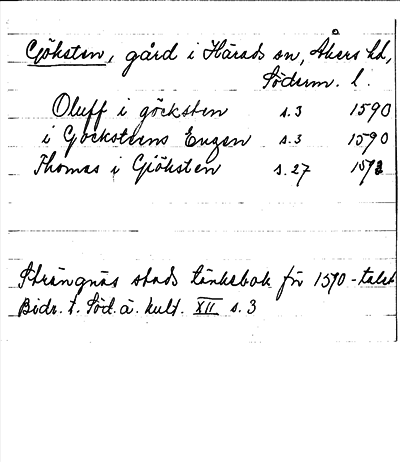 Gjöksten, gård i Härads sn, Åkers hd,
Söderm. l.
Oluff i göcksten s.3 1590
i Gjöcksteens Engen s.3 1590
Thomas i Gjöksten s.27
Strängnäs stads tänkebok för 1590-talet
Bidr. t. Söd. ä. kult. XII s.3